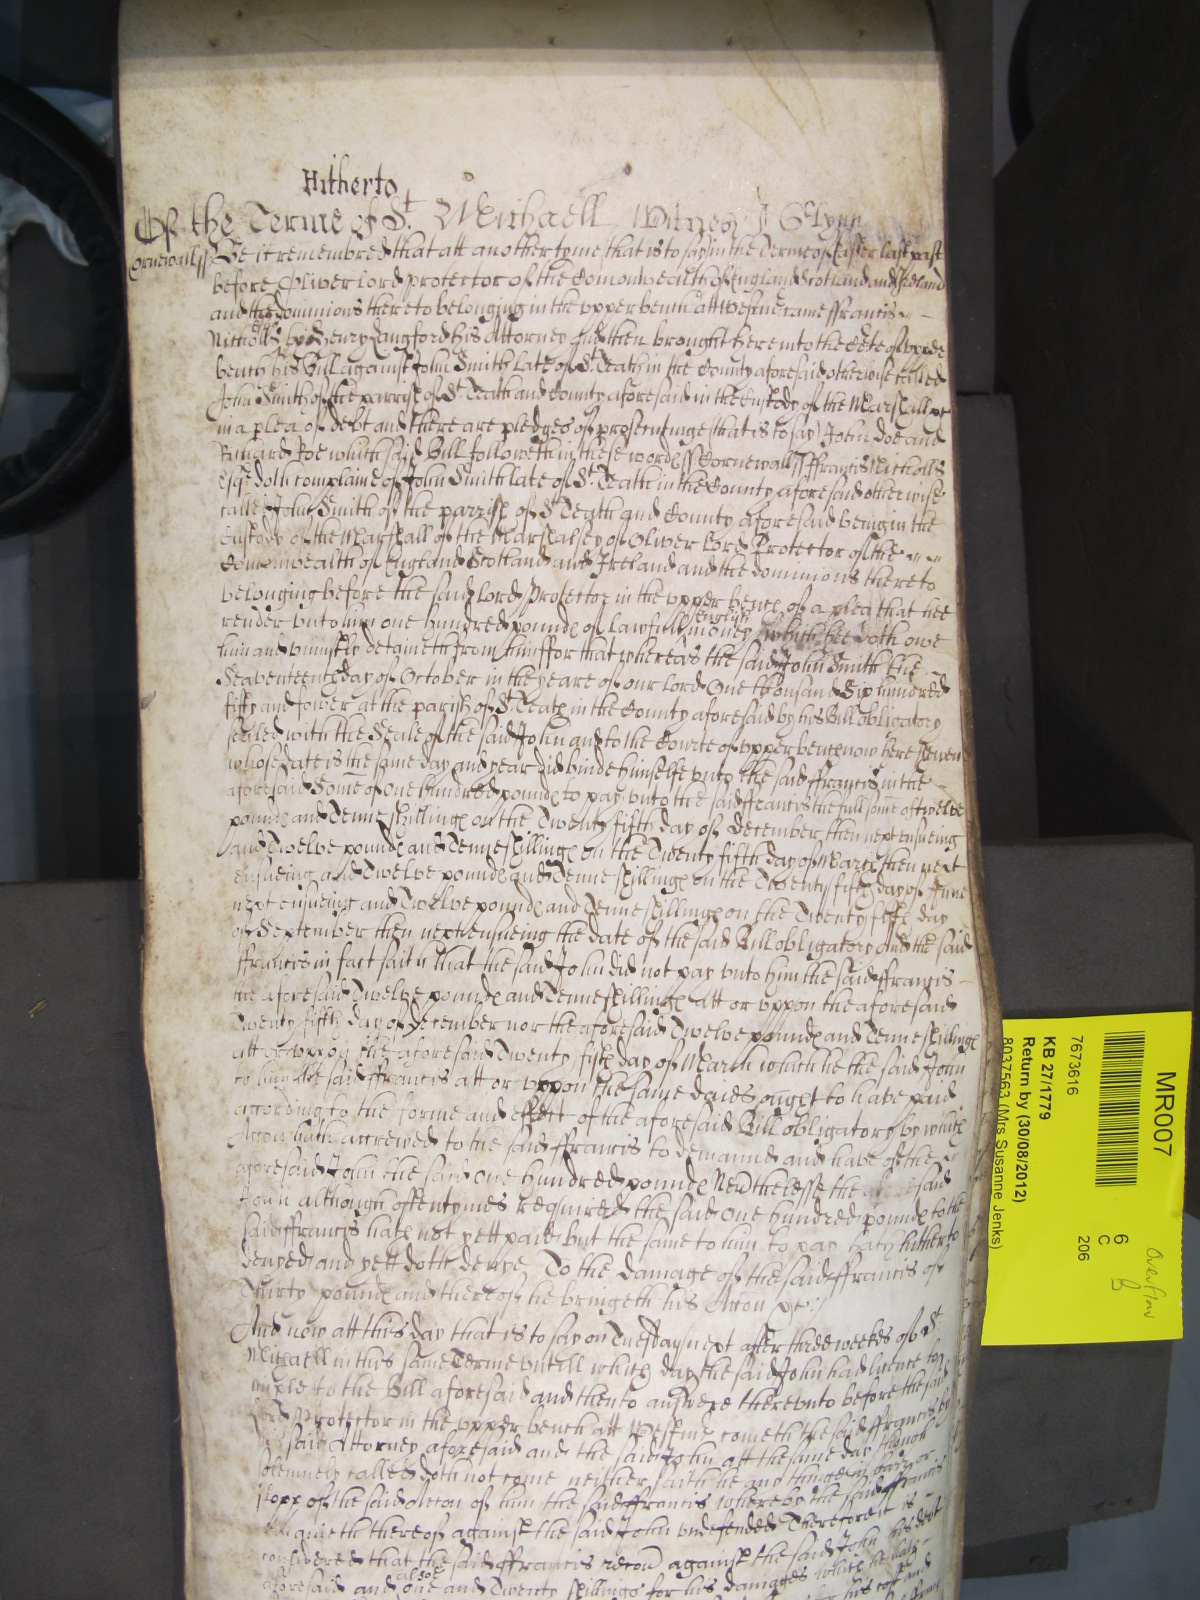 Hitherto
Of the Terme of St. Michaell Witnes J Glynn
Cornewall ss Be it remembred that att another tyme that is to say in the Terme of Easter last past
before Oliver lord protector of the Comonwealth of England Scotland and Ireland
and the dominions thereto belonging in the upper bench att Westm came ffrancis
Nicholls Esqr by Henry Langford his Attorney And then brought here into the Corte of upper
bench his Bill against John Smith late of St. Teath in the County aforesaid otherwise called
John Smith of the parrish of St. Teath and County aforesaid in the Custody of the Marshall &c
in a plea of debt and there are pledges of prosecutinge (that is to say) John Doe and
Richard Roe which said Bill followeth in these wordes ss Cornewall ss ffrancis Nicholls
Esqr doth complaine of John Smith late of St. Teath in the County aforesaid otherwise
called John Smith of the parrish of St Teath and County aforesaid being in the
Custody of the Marshall of the Marshalsey of Oliver Lord Protector of the
Comonwealth of England Scotland and Ireland and the dominions thereto
belonging before the said Lord Protector in the upper bench of a plea that hee
render unto him one hundred pounde of lawfull English money which hee doth owe
him and uniustly detaineth from him ffor that whereas the said John Smith the
Seaventeenth day of October in the yeare of our Lord One thousand Six hundred
fifty and fower at the parish of St. Teath in the County aforesaid by his Bill obligatory
sealed with the Seale of the said John and to the Courte of upper bench now here shewen
whose date is the same day and year did binde himselfe unto the said ffrancis in the
aforesaid Some of one hundred pounde to pay unto the said ffrancis the full some of twelve
pounde and Tenne shillinge on the Twenty fifth day of December then next ensueing
and Twelve pounde and Tenne shillinge on the Twenty fifth day of March then next
ensueing and Twelve pounde and Tenne shillinge on the Twenty fifth day of June
next ensueing and Twelve pounde and Tenne shillinge on the Twenty fifth day
of September then next ensueing the date of the said Bill obligatory And the said
ffrancis in fact saith that the said John did not pay unto him the said ffrancis
the aforesaid Twelve pounde and Tenne shillinge att or uppon the aforesaid
Twenty fifth day of December nor the aforesaid Twelve pounde and Tenne shillinge
att or uppon the aforesaid Twenty fifth day of March which he the said John
to him the said ffrancis att or uppon the same daies ought to have paid
according to the forme and effect of the aforesaid Bill obligatory by which
Accon hath accrewed to the said ffrancis to demaund and have of the
aforesaid John the said One hundred pounde Neverthelesse the said
John although oftentymes required the said One hundred pounde to the
said ffrancis hath not yett paid but the same to him to pay hath hitherto
denyed and yett doth denye To the damage of the said ffrancis of
Thirty pounde and thereof he bringeth his Accon &c
And now att this day that is to say on Tuesday next after three weekes of St
Michaell in this same Terme untill which day the said John had licence to
imple to the Bill aforesaid and then to answere thereunto before the said
Lord Protector in the upper bench att Westm cometh the said ffrancis by
his said Attorney aforesaid and the said John att the same day though
solemnely called doth not come neither saith he any thinge in barr or
stopp of the said Accon of him the said ffrancis whereby the said ffrancis
remaineth thereof against the said John undefended Therefore it is
considered that the said ffrancis recover against the said John his debt
aforesaid and alsoe one and Twenty shillings for his damages which he hath
his cost and
MR007
7673616
KB 27/1779
Return by (30/08/2012)
8037563 (Mrs Susanne Jenks)
6
C
206
Overflow
B